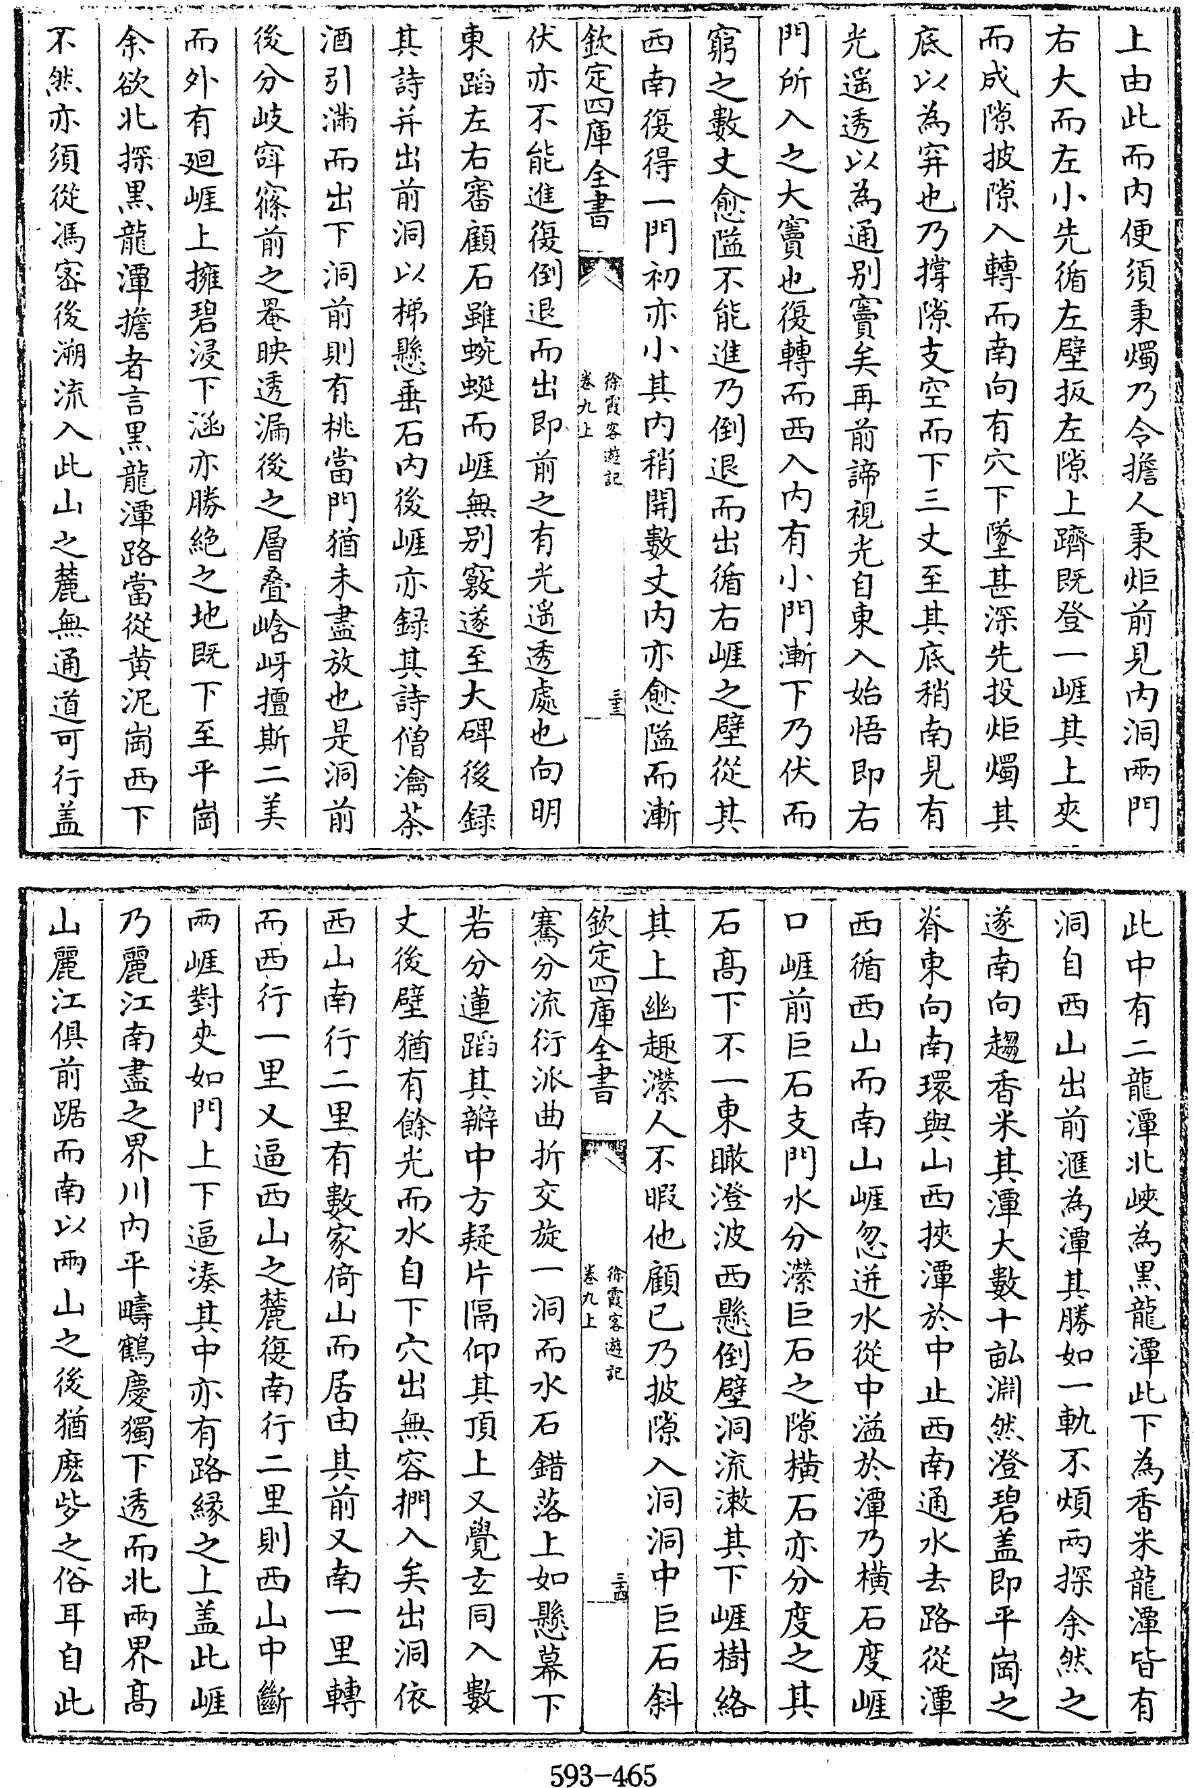 上由此而内便須秉燭乃令擔人秉炬前見内洞兩門
右大而左小先循左壁扳左隙上躋既登一崕其上夾
而成隙披隙入轉而南向有穴下墜甚深先投炬燭其
底以為穽也乃撐隙支空而下三丈至其底稍南見有
光遥透以為通别竇矣再前諦視光自東入始悟即右
門所入之大竇也復轉而西入内有小門漸下乃伏而
窮之數丈愈隘不能進乃倒退而出循右崕之壁從其
西南復得一門初亦小其内稍開數丈内亦愈隘而漸
欽定四庫全書
徐霞客遊記
卷九上
三三
伏亦不能進復倒退而出即前之有光遥透處也向明
東蹈左右審顧石雖蜿蜒而崕無别竅遂至大碑後録
其詩并出前洞以梯懸垂石内後崕亦録其詩僧瀹茶
酒引滿而出下洞前則有桃當門猶未盡放也是洞前
後分岐窅窱前之罨映透漏後之層叠峆岈擅斯二美
而外有廻崕上擁碧浸下涵亦勝絶之地既下至平崗
余欲北探黒龍潭擔者言黒龍潭路當從黄泥崗西下
不然亦須從馮密後溯流入此山之麓無通道可行盖
此中有二龍潭北峽為黒龍潭此下為香米龍潭皆有
洞自西山出前滙為潭其勝如一軌不煩兩探余然之
遂南向趨香米其潭大數十畆淵然澄碧盖即平崗之
脊東向南環與山西挾潭於中止西南通水去路從潭
西循西山而南山崕忽迸水從中溢於潭乃横石度崕
口崕前巨石支門水分瀠巨石之隙横石亦分度之其
石髙下不一東瞰澄波西懸倒壁洞流漱其下崕樹絡
其上幽趣瀠人不暇他顧已乃披隙入洞洞中巨石斜
欽定四庫全書
徐霞客遊記
卷九上
三四
騫分流衍派曲折交旋一洞而水石錯落上如懸幕下
若分蓮蹈其瓣中方疑片隔仰其頂上又覺玄同入數
丈後壁猶有餘光而水自下穴出無容捫入矣出洞依
西山南行二里有數家倚山而居由其前又南一里轉
而西行一里又逼西山之麓復南行二里則西山中斷
兩崕對夾如門上下逼湊其中亦有路縁之上盖此崕
乃麗江南盡之界川内平疇鶴慶獨下透而北兩界髙
山麗江俱前踞而南以兩山之後猶麽㱔之俗耳自此
593-465